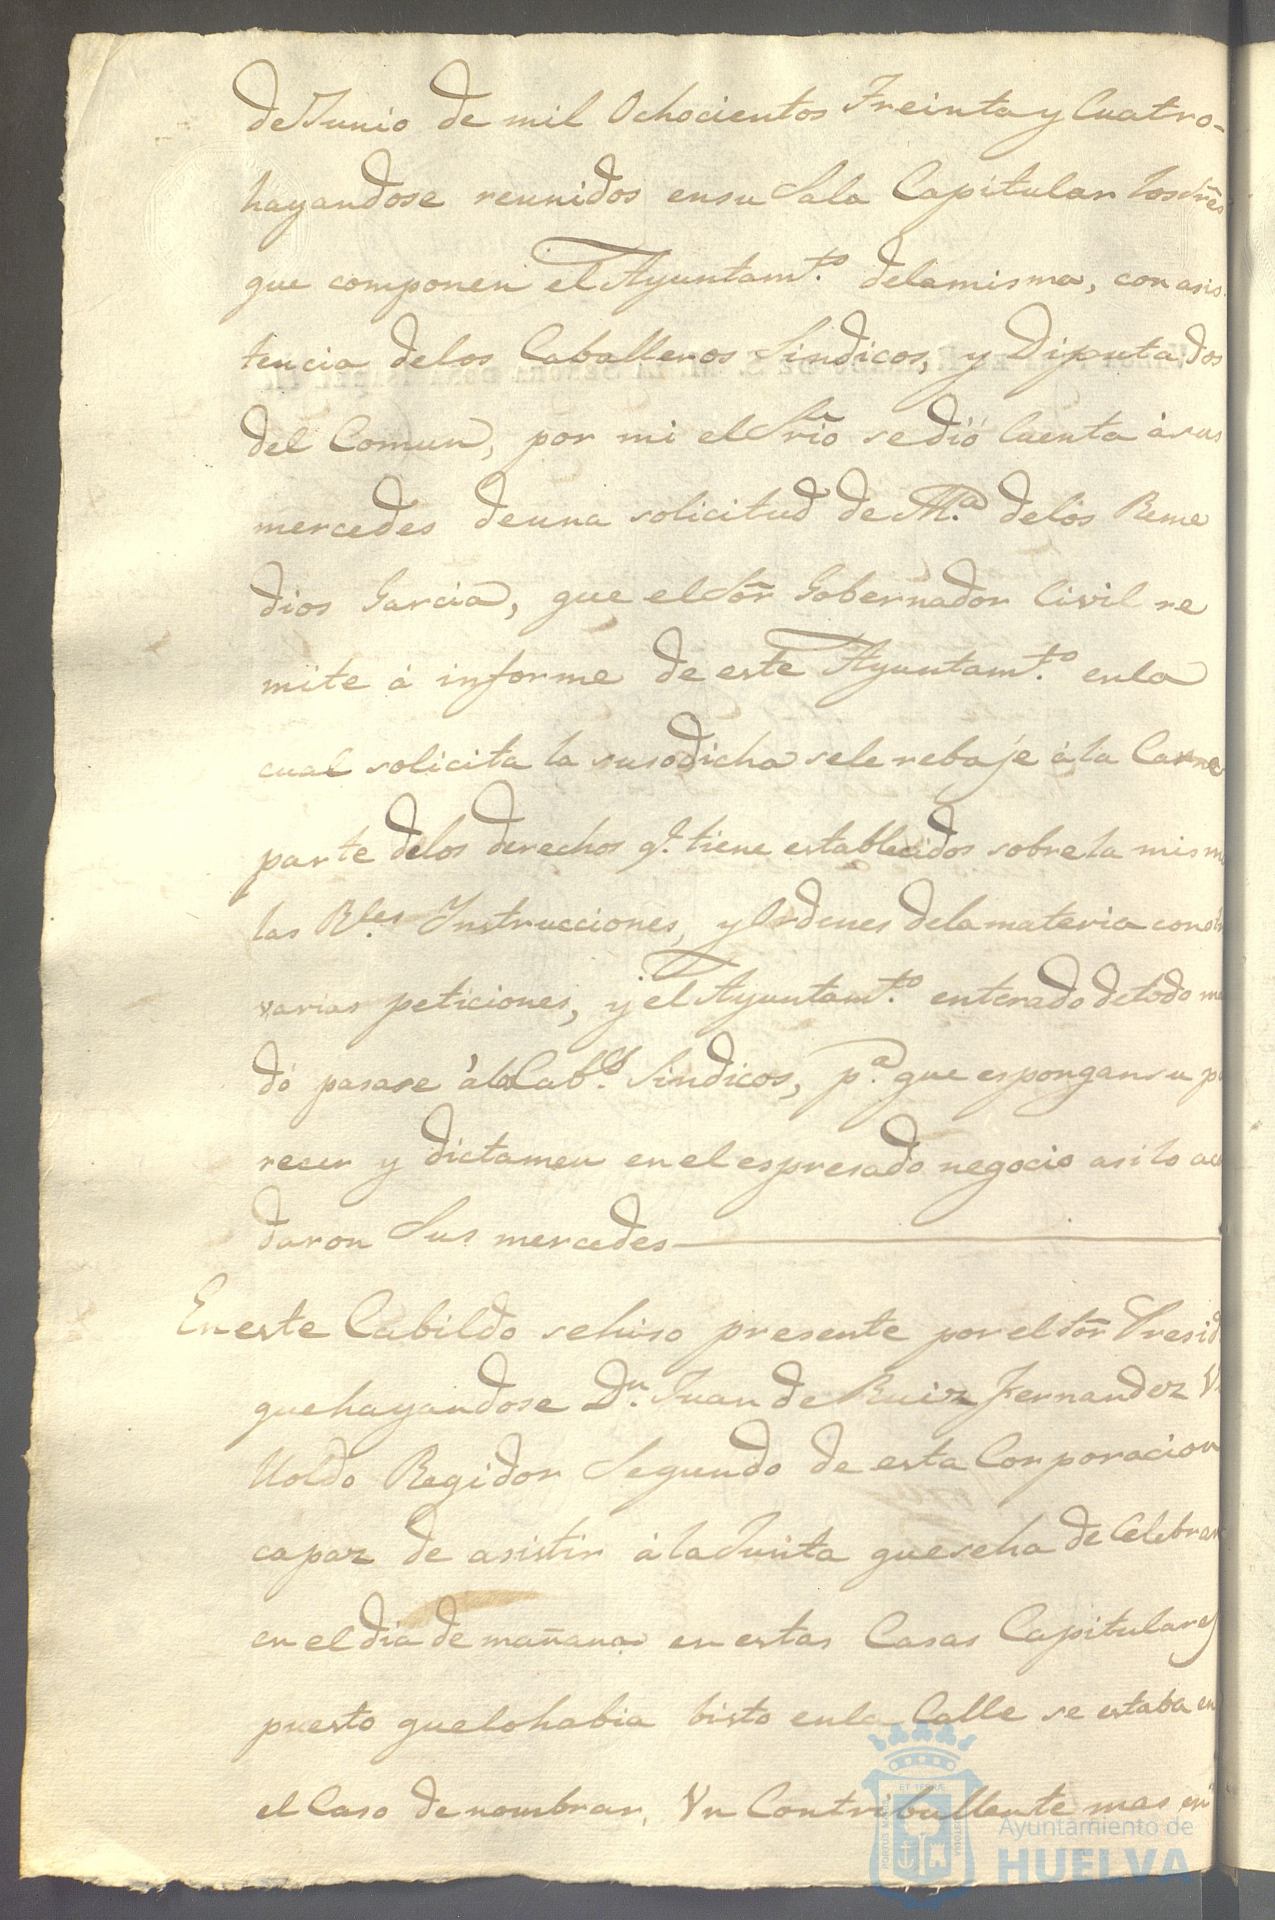 de Junio de mil Ochocientos Treinta y Cuatro-
hayandose reunidos en su Sala Capitular los Sres
que componen el Ayuntamto. de la misma, con asis
tencia de los Caballeros Sindicos, y Diputados
del Comun, por mi el Srio se dió Cuenta à sus
mercedes de una solicitud de Ma. de los Reme
dios Garcia, que el Sor Gobernador Civil re
mite á informe de este Ayuntamto. en la
cual solicita la susodicha se le rebaje á la Carne
parte de los derechos q.e tiene establecidos sobre la misma
las Rles. Instrucciones, y Ordenes de la materia con otr
varias peticiones, y el Ayuntamto. enterado de todo ma
dó pasase á los Cabs. Sindicos, pa. que espongan su pa
recer y dictamen en el espresado negocio asi lo acor
daron Sus mercedes
En este Cabildo se hiso presente por el Sor Presid
que hayandose Dn. Juan de Ruiz Fernandez
Regidor Segundo de esta Corporacion
capaz de asistir á la Junta que se ha de Celebrar
en el dia de mañana en estas Casas Capitulares
puesto que lo habia bisto en la Calle se estaba en
el Caso de nombrar, Un Contribullente mas en
ET TERRAE
PORTUS MARIS
CUSTODIA
Ayuntamiento de
HUELVA